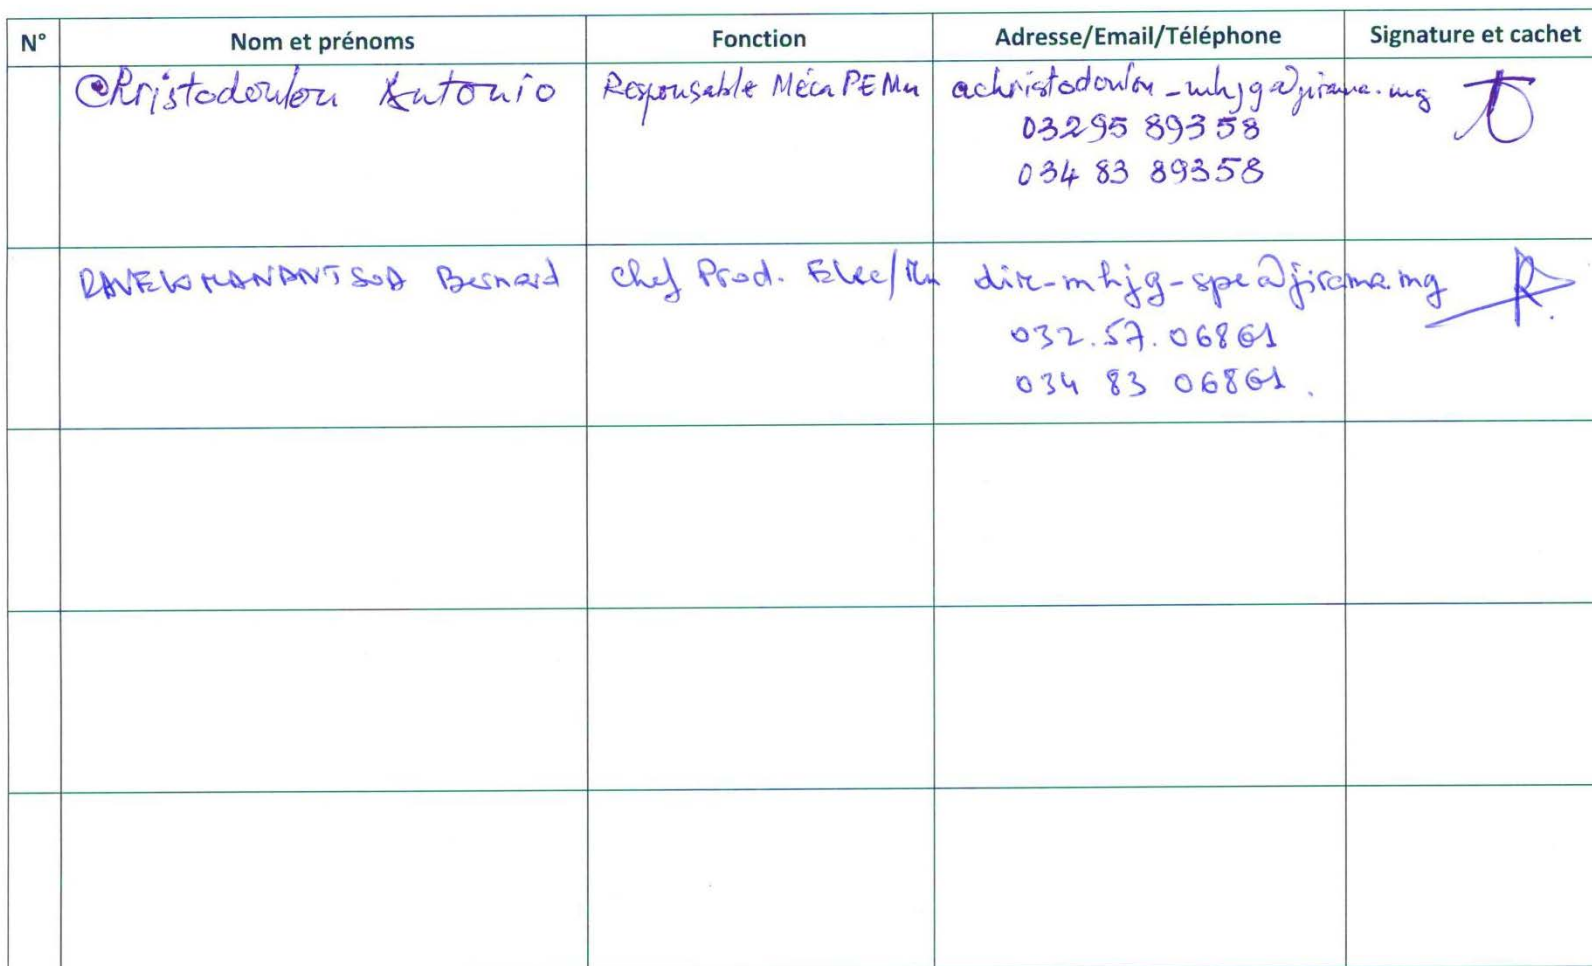 N° Nom et prénoms Fonction Adresse/Email/Téléphone Signature et cachet
Christodoulou Antonio Responsable Méca PEMu achristodoulou-mhjg@jirama.mg
03295 89358
034 83 89358
RAVELOMANANTSOA Bernard Chef Prod. Elec/Mu dir-mhjg-spe@jirama.mg
032.57.06861
034 83 06861.